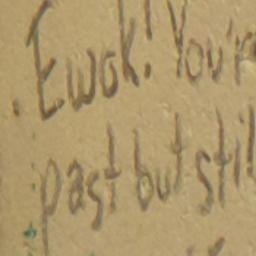 Ewok! You'r
past but stil